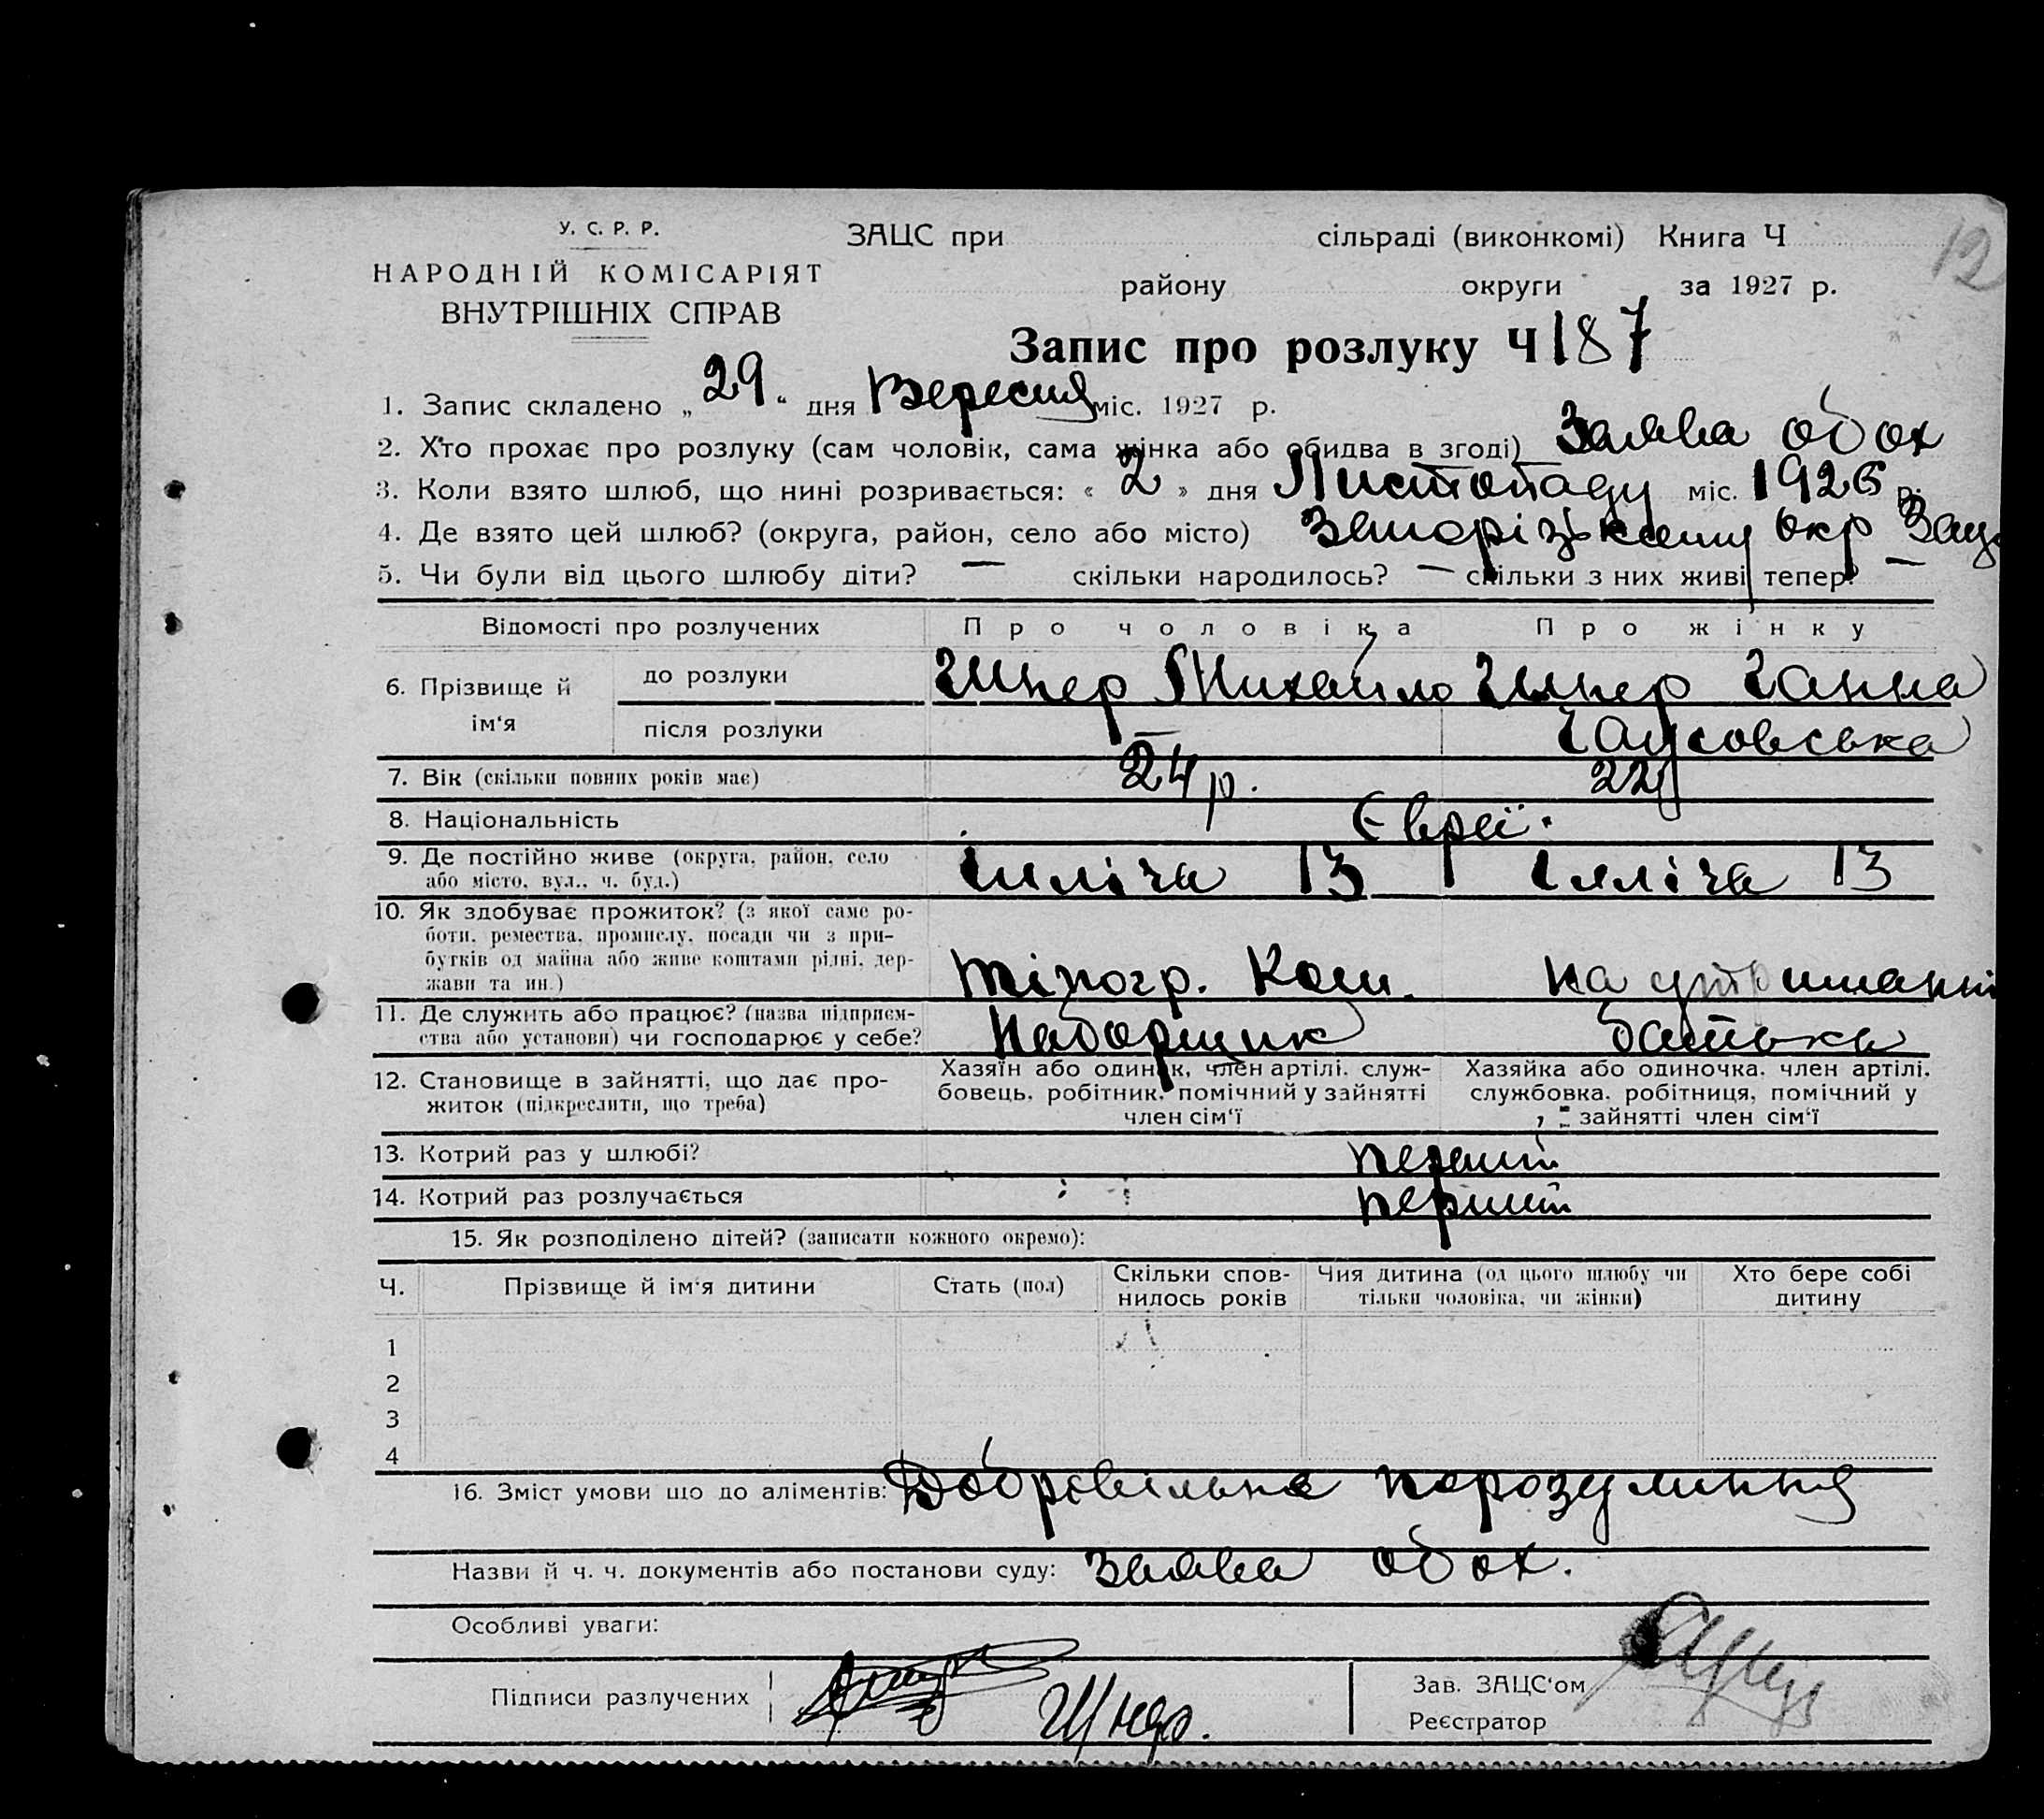 12
У. С. Р. Р.
НАРОДНІЙ КОМІСАРІЯТ
ВНУТРІШНІХ СПРАВ
ЗАЦС при сільраді (виконкомі) Книга Ч
району округи за 1927 р.
Запис про розлуку Ч 187
1. Запис складено „29“ дня Вересня міс. 1927 р.
2. Хто прохає про розлуку (сам чоловік, сама жінка або обидва в згоді) Заява обох
3. Коли взято шлюб, що нині розривається: «2» дня Листопаду міс. 1926 р.
4. Де взято цей шлюб? (округа, район, село або місто) Запорізькому Окр Зацс
5. Чи були від цього шлюбу діти? — скільки народилось? — скільки з них живі тепер? —
Відомості про розлучених Про чоловіка Про жінку
6. Прізвище й ім‘я
до розлуки Михайло Ганна
після розлуки —
7. Вік (скільки повних років має) 24 р. 22
8. Національність Євреї.
9. Де постійно живе (округа, район, село або місто, вул., ч. буд.) Ілліча 13 Ілліча 13
10. Як здобуває прожиток? (з якої саме роботи, ремества, промислу, посади чи з прибутків од майна або живе коштами рідні, держави та ин.) Тіпогр. Ком. на утриманні
11. Де служить або працює? (назва підприємства або установи) чи господарює у себе? Наборщик батька
12. Становище в зайнятті, що дає прожиток (підкреслити, що треба)
Хазяїн або одинак, член артілі, службовець, робітник, помічний у зайнятті член сім‘ї
Хазяйка або одиночка, член артілі, службовка, робітниця, помічний у зайнятті член сім‘ї
13. Котрий раз у шлюбі? перший
14. Котрий раз розлучається перший
15. Як розподілено дітей? (записати кожного окремо):
Ч. Прізвище й ім‘я дитини Стать (пол) Скільки сповнилось років Чия дитина (од цього шлюбу чи тільки чоловіка, чи жінки) Хто бере собі дитину
1
2
3
4
16. Зміст умови що до аліментів: Добровільне порозуминня
Назви й ч. ч. документів або постанови суду: заява обох.
Особливі уваги:
Підписи разлучених
Зав. ЗАЦС‘ом
Реєстратор